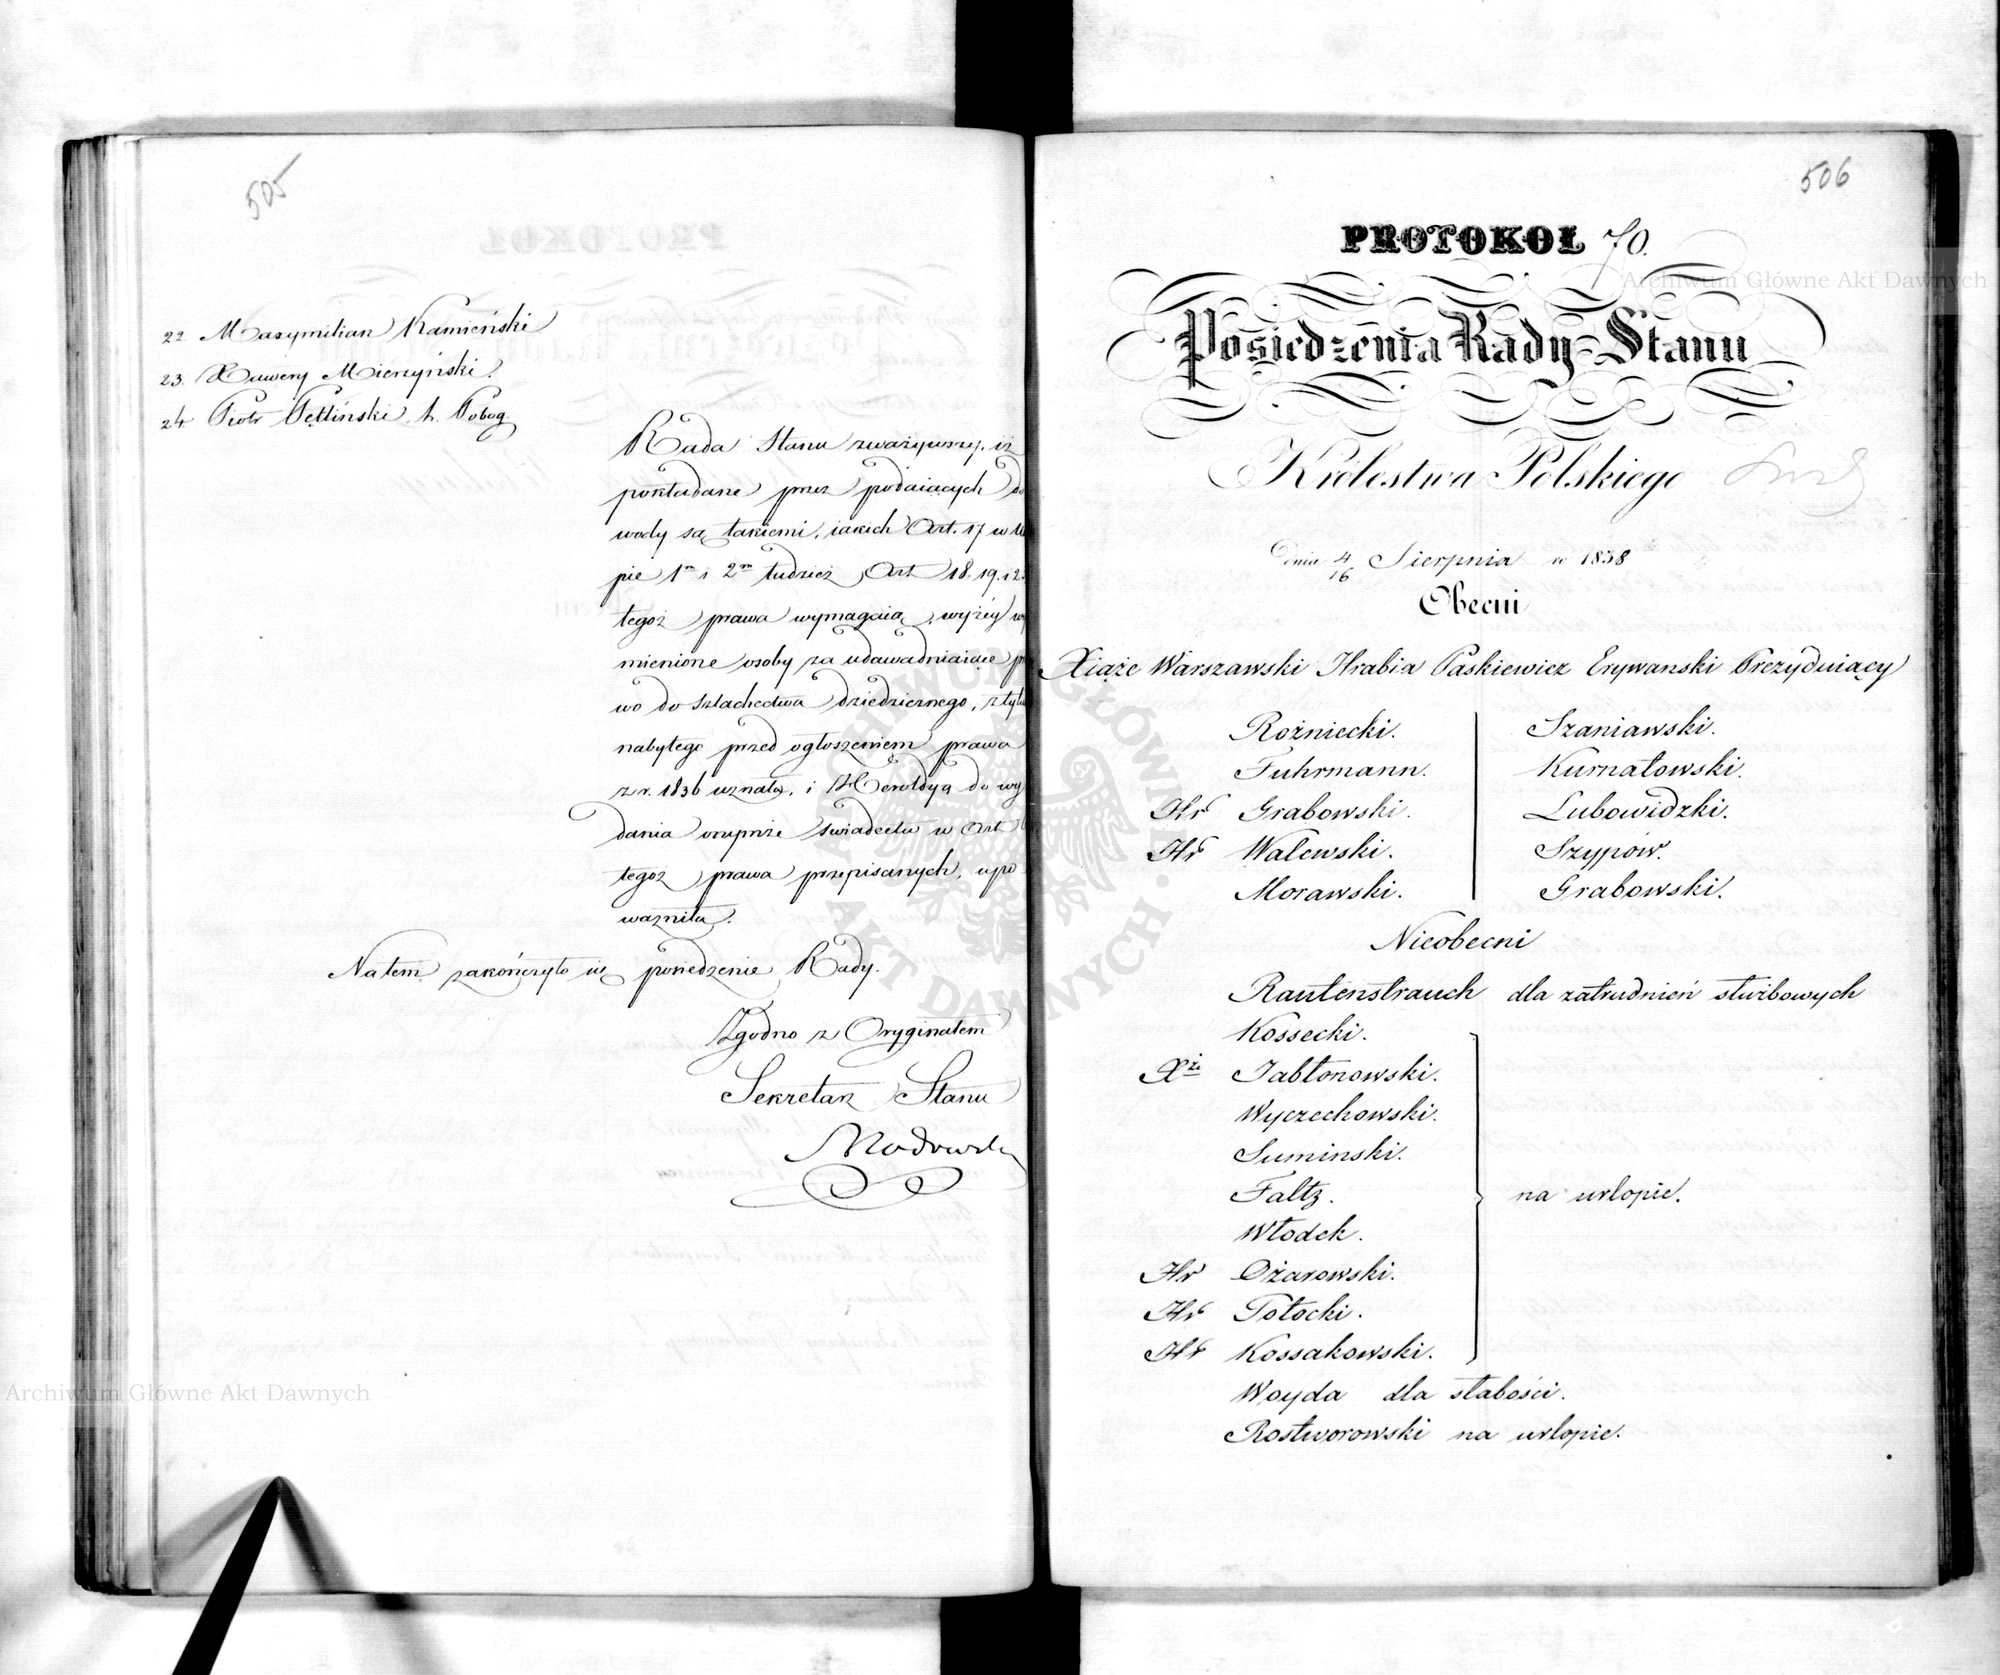 505
22 Maxymilian Kamieński
23. Xawery Mierzyński.
24 Piotr Pętliński h. Pobog.
Rada Stanu zważywszy, iż
pokładane przez podaiących do
wody są takiemi, iakich Art. 17 w
pie 1m i 2m tudzież Art 18. 19. i 2
tegoż prawa wymagaią, wyżéy wy
mienione osoby za udawadniaiące pr
wo do szlachectwa dziedzicznego, z tytu
nabytego przed ogłoszeniem prawa
z r. 1836 uznała, i Heroldyą do wy
dania onymże świadectw w Art
tegoż prawa przepisanych, upo
ważniła.
Na tem zakończyło się posiedzenie Rady.
Zgodno z Oryginałem
Sekretarz Stanu
506
PROTOKOŁ 70.
Posiedzenia Rady Stanu
Królestwa Polskiego
Dnia 4/16 Sierpnia r 1838
Obecni
Xiąże Warszawski Hrabia Paskiewicz Erywanski Prezyduiący
Rożniecki. Szaniawski.
Fuhrmann. Kurnatowski.
Hr Grabowski. Lubowidzki.
Hr Walewski. Szypow.
Morawski. Grabowski.
Nieobecni
Rautenstrauch dla zatrudnień służbowych
Kossecki.
Xże Jabłonowski.
Wyczechowski.
Suminski.
Faltz. na urlopie.
Włodek.
Hr Ożarowski.
Hr Potocki.
Hr Kossakowski.
Woyda dla słabości.
Rostworowski na urlopie.
Archiwum Główne Akt Dawnych
Archiwum Główne Akt Dawnych
ARCHIWUM GŁÓWNE AKT DAWNYCH